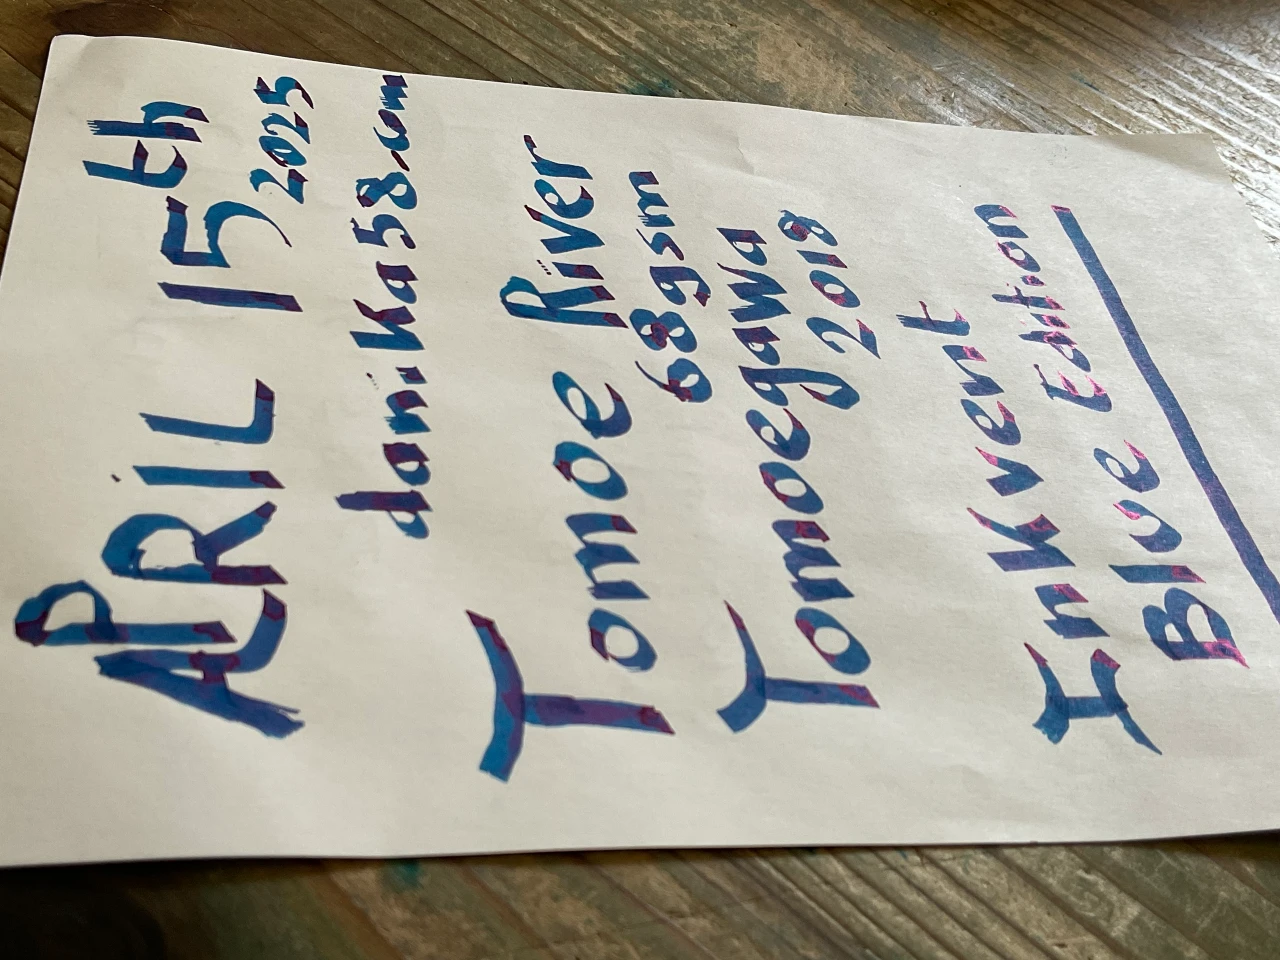 APRIL 15th
2025
danika58.com
Tomoe River
68gsm
Tomoegawa
2018
Inkvent
Blue Edition